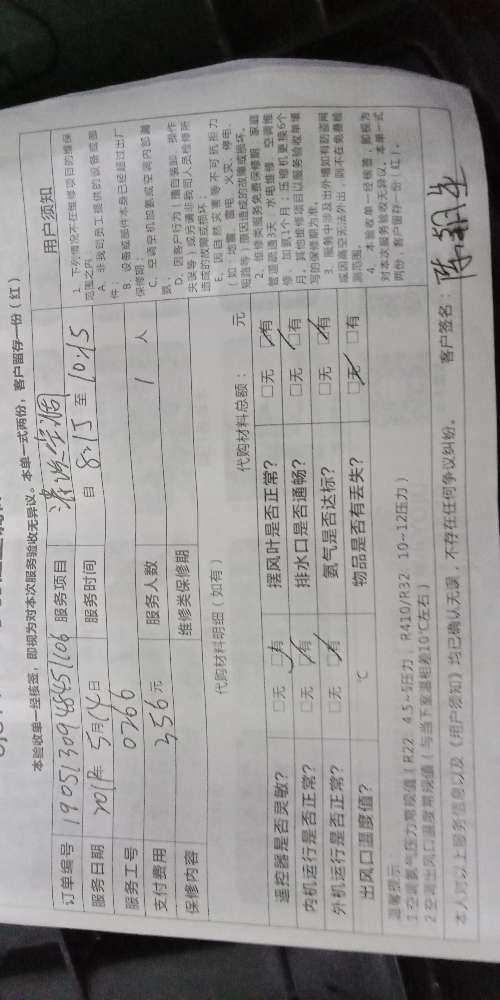 本验收单一经核签，即视为对本次服务验收无异议。本单一式两份，客户留存一份（红）
订单编号 190513094845 1106 服务项目 清洗空调
服务日期 2019年 5月14日 服务时间 自 8:15 至 10:45
服务工号 0266
支付费用 356 元 服务人数 1 人
保修内容 维修类保修期
代购材料明细（如有） 代购材料总额： 元
遥控器是否灵敏？ □无 ☑有 摆风叶是否正常？ □无 ☑有
内机运行是否正常？ □无 ☑有 排水口是否通畅？ □无 ☑有
外机运行是否正常？ □无 ☑有 氨气是否达标？ □无 ☑有
出风口温度值？ ℃ 物品是否有丢失？ ☑无 □有
用户须知
1. 下列情况不在维修项目的维保范围之内
A. 非我司员工提供的设备或部件
B. 设备或部件本身已经超过出厂保修期；
C. 空调空机加氨或空调内部漏氨
D. 因客户行为（擅自装卸、操作失误等）或另请非我司人员检修所造成的故障或损坏；
E. 因自然灾害等不可抗拒力（如：地震、雷电、火灾、停电、短路等）原因造成的故障或损坏。
2. 维修类服务免费保修期：家庭管道疏通3天；水电维修、空调维修、加氨1个月；压缩机更换6个月，其他维修项目以服务验收单填写的保修期为准。
3. 服务中涉及出外墙如有防盗网或因高空无法外出，则不在免费检测范围。
4. 本验收单一经核签，即视为对本次服务验收无异议。本单一式两份，客户留存一份（红）。
温馨提示
1.空调氨气压力常规值（R22 4.5~5压力；R410/R32 10~12压力）
2.空调出风口温度常规值（与当下室温相差10℃左右）
本人对以上服务信息以及《用户须知》均已确认无误，不存在任何争议纠纷。 客户签名：